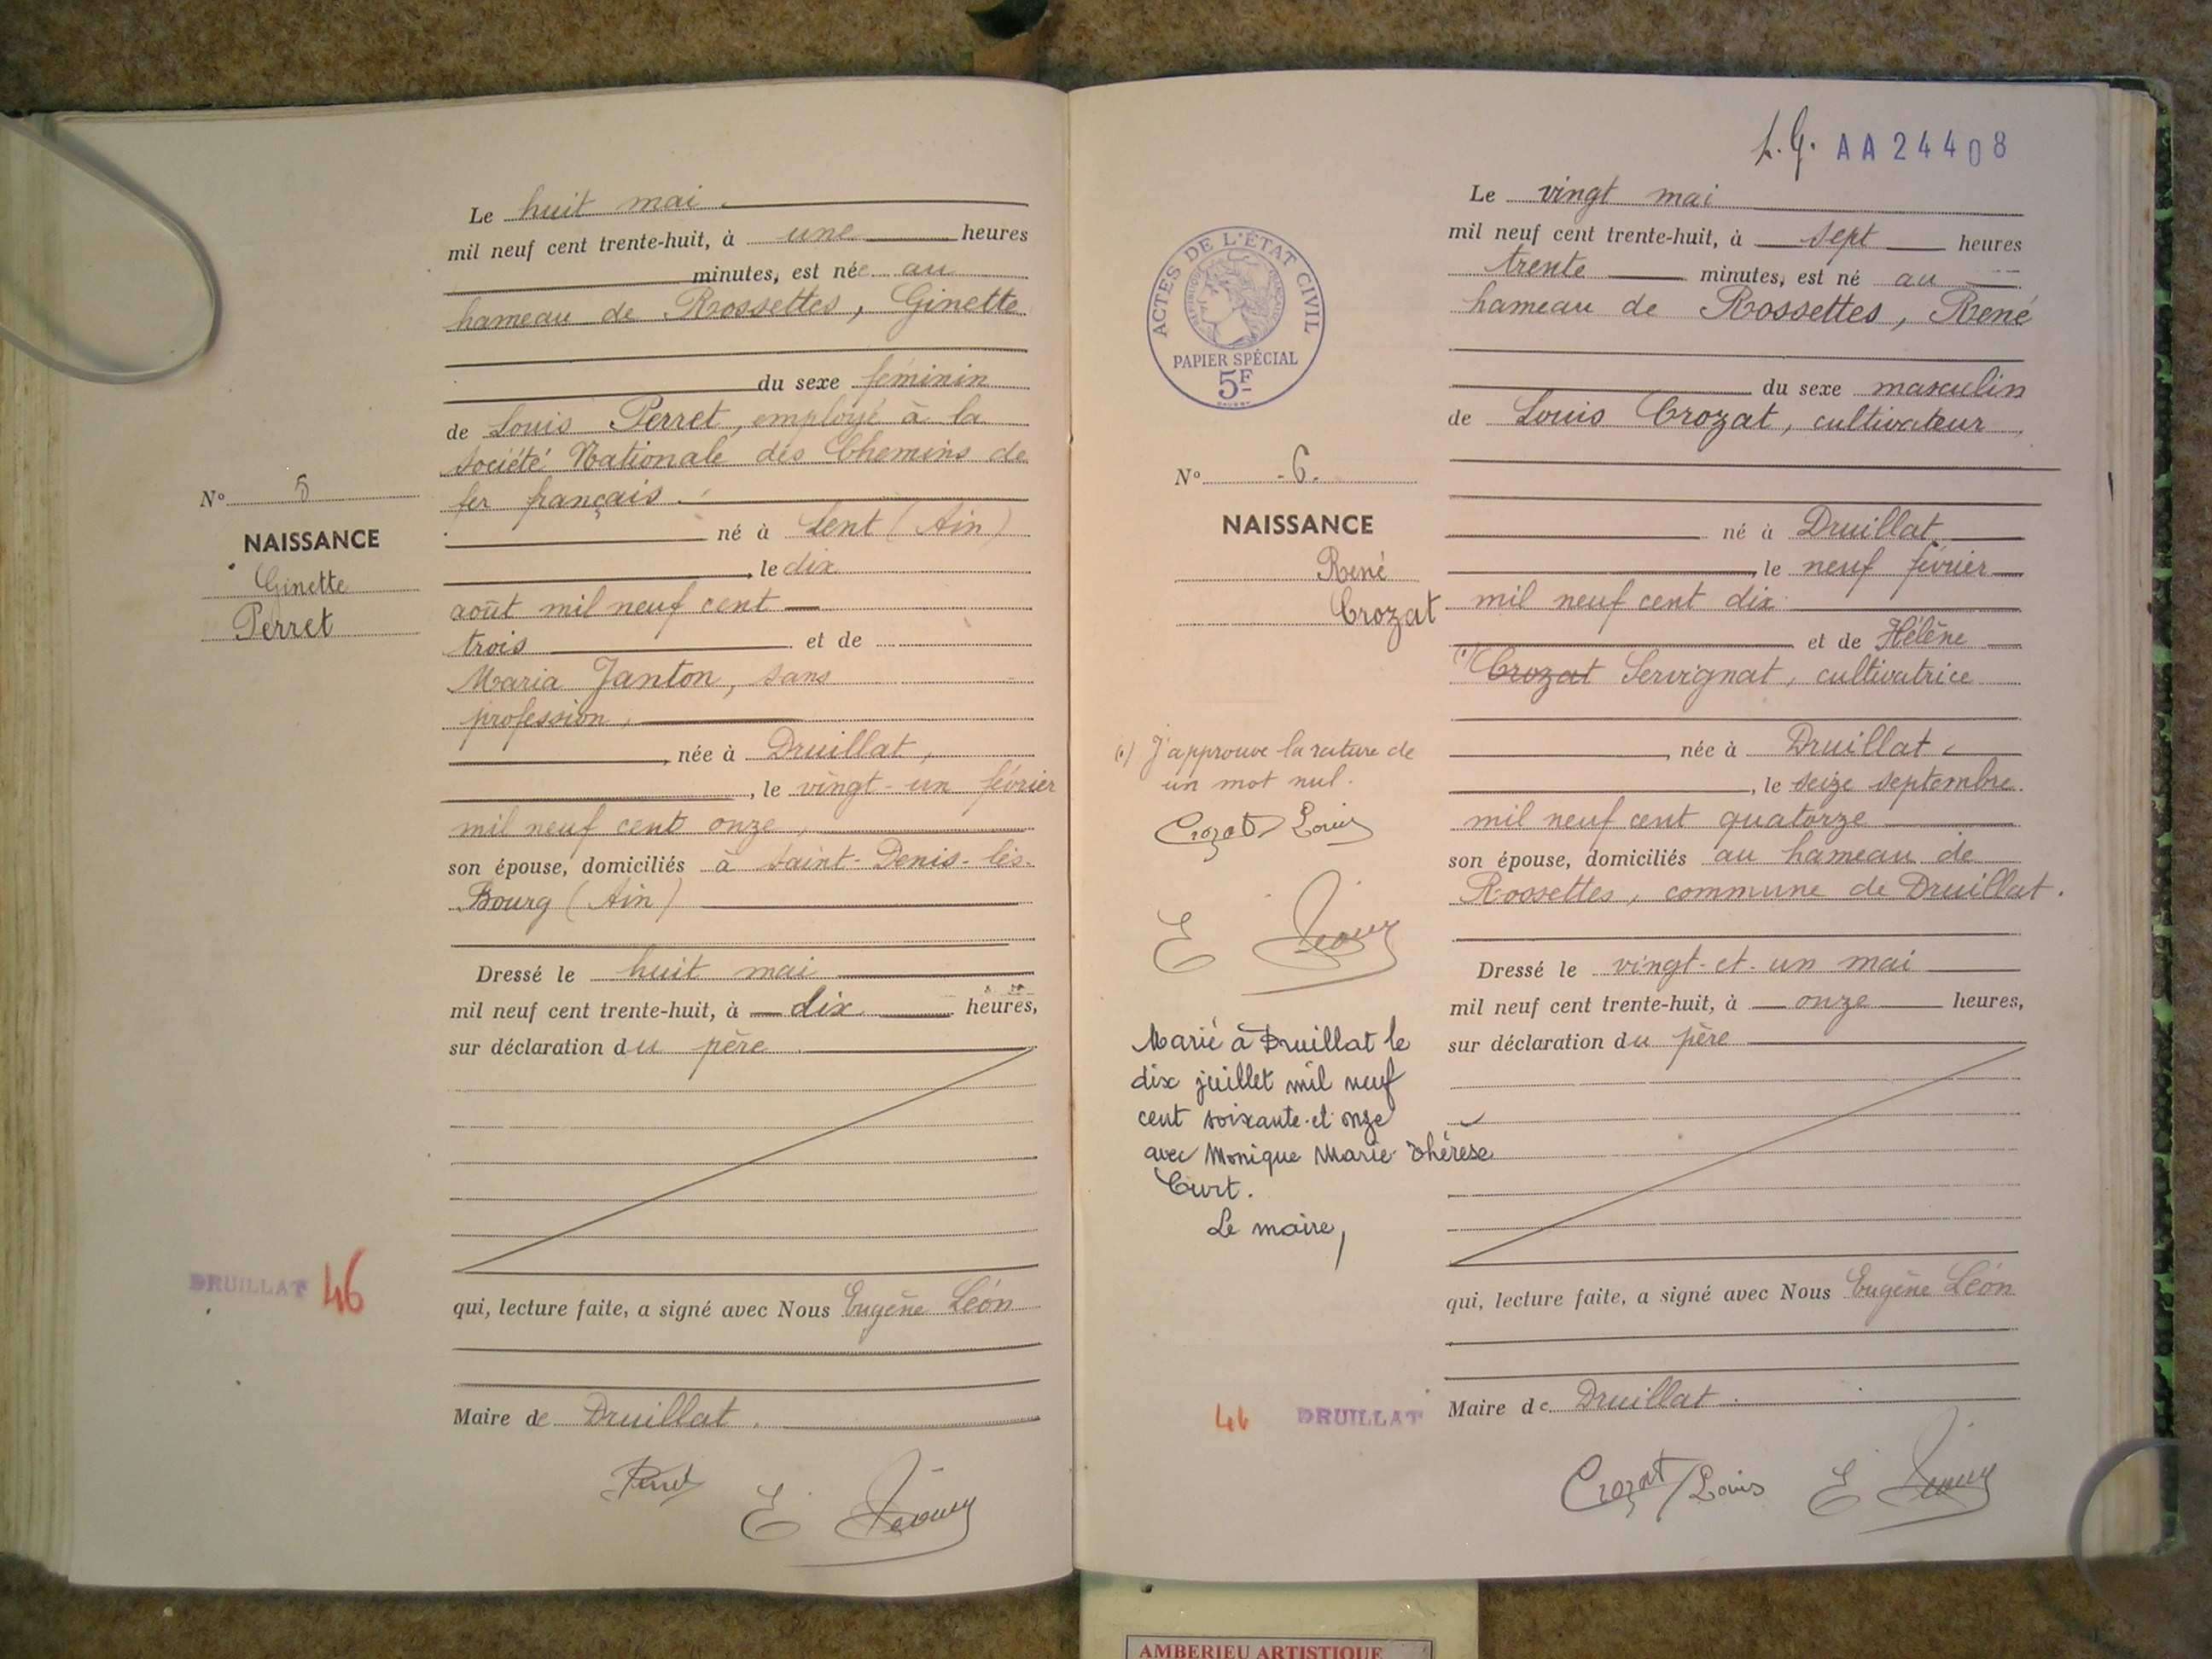 Le huit mai
mil neuf cent trente-huit, à une heures
minutes, est née au
hameau de Rossettes, Ginette
du sexe féminin
de Louis Perret, employé à la
Société Nationale des Chemins de
fer français.
né à Lent (Ain)
, le dix
août mil neuf cent
trois et de
Maria Janton, sans
profession,
, née à Druillat,
, le vingt-un février
mil neuf cent onze,
son épouse, domiciliés à Saint-Denis-lès-
Bourg (Ain)
Dressé le huit mai
mil neuf cent trente-huit, à dix heures,
sur déclaration du père
qui, lecture faite, a signé avec Nous Eugène Léon
Maire de Druillat.
Perret
E
N° 5
NAISSANCE
Ginette
Perret
DRUILLAT 46
L.G. AA 24408
ACTES DE L'ÉTAT CIVIL
RÉPUBLIQUE FRANÇAISE
PAPIER SPÉCIAL
5F
N° 6.
NAISSANCE
René
Crozat
(1) J'approuve la rature de
un mot nul.
Crozat Louis
E
Marié à Druillat le
dix juillet mil neuf
cent soixante-et-onze
avec Monique Marie Thérèse
Curt.
Le maire,
46 DRUILLAT
Le vingt mai
mil neuf cent trente-huit, à sept heures
trente minutes, est né au
hameau de Rossettes, René
du sexe masculin
de Louis Crozat, cultivateur,
né à Druillat
, le neuf février
mil neuf cent dix
et de Hélène
(1) Crozat Servignat, cultivatrice
, née à Druillat
, le seize septembre
mil neuf cent quatorze
son épouse, domiciliés au hameau de
Rossettes, commune de Druillat.
Dressé le vingt-et-un mai
mil neuf cent trente-huit, à onze heures,
sur déclaration du père
qui, lecture faite, a signé avec Nous Eugène Léon
Maire de Druillat.
Crozat Louis E
AMBERIEU ARTISTIQUE